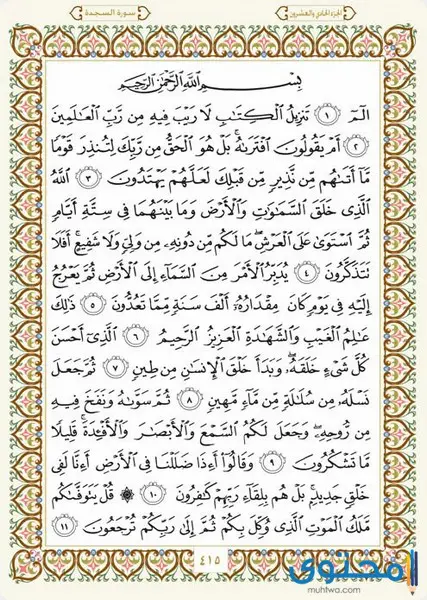 الجزء الحادي والعشرون
سورة السجدة
بِسْمِ اللَّهِ الرَّحْمَٰنِ الرَّحِيمِ
الٓمٓ ۝١ تَنزِيلُ ٱلْكِتَٰبِ لَا رَيْبَ فِيهِ مِن رَّبِّ ٱلْعَٰلَمِينَ
۝٢ أَمْ يَقُولُونَ ٱفْتَرَىٰهُ ۚ بَلْ هُوَ ٱلْحَقُّ مِن رَّبِّكَ لِتُنذِرَ قَوْمًا
مَّآ أَتَىٰهُم مِّن نَّذِيرٍ مِّن قَبْلِكَ لَعَلَّهُمْ يَهْتَدُونَ ۝٣ ٱللَّهُ
ٱلَّذِى خَلَقَ ٱلسَّمَٰوَٰتِ وَٱلْأَرْضَ وَمَا بَيْنَهُمَا فِى سِتَّةِ أَيَّامٍ
ثُمَّ ٱسْتَوَىٰ عَلَى ٱلْعَرْشِ ۖ مَا لَكُم مِّن دُونِهِۦ مِن وَلِىٍّ وَلَا شَفِيعٍ ۚ أَفَلَا
تَتَذَكَّرُونَ ۝٤ يُدَبِّرُ ٱلْأَمْرَ مِنَ ٱلسَّمَآءِ إِلَى ٱلْأَرْضِ ثُمَّ يَعْرُجُ
إِلَيْهِ فِى يَوْمٍ كَانَ مِقْدَارُهُۥٓ أَلْفَ سَنَةٍ مِّمَّا تَعُدُّونَ ۝٥ ذَٰلِكَ
عَٰلِمُ ٱلْغَيْبِ وَٱلشَّهَٰدَةِ ٱلْعَزِيزُ ٱلرَّحِيمُ ۝٦ ٱلَّذِىٓ أَحْسَنَ
كُلَّ شَىْءٍ خَلَقَهُۥ ۖ وَبَدَأَ خَلْقَ ٱلْإِنسَٰنِ مِن طِينٍ ۝٧ ثُمَّ جَعَلَ
نَسْلَهُۥ مِن سُلَٰلَةٍ مِّن مَّآءٍ مَّهِينٍ ۝٨ ثُمَّ سَوَّىٰهُ وَنَفَخَ فِيهِ
مِن رُّوحِهِۦ ۖ وَجَعَلَ لَكُمُ ٱلسَّمْعَ وَٱلْأَبْصَٰرَ وَٱلْأَفْـِٔدَةَ ۚ قَلِيلًا
مَّا تَشْكُرُونَ ۝٩ وَقَالُوٓا۟ أَءِذَا ضَلَلْنَا فِى ٱلْأَرْضِ أَءِنَّا لَفِى
خَلْقٍ جَدِيدٍۭ ۚ بَلْ هُم بِلِقَآءِ رَبِّهِمْ كَٰفِرُونَ ۝١٠ ۞ قُلْ يَتَوَفَّىٰكُم
مَّلَكُ ٱلْمَوْتِ ٱلَّذِى وُكِّلَ بِكُمْ ثُمَّ إِلَىٰ رَبِّكُمْ تُرْجَعُونَ ۝١١
٤١٥
محتوى
muhtwa.com